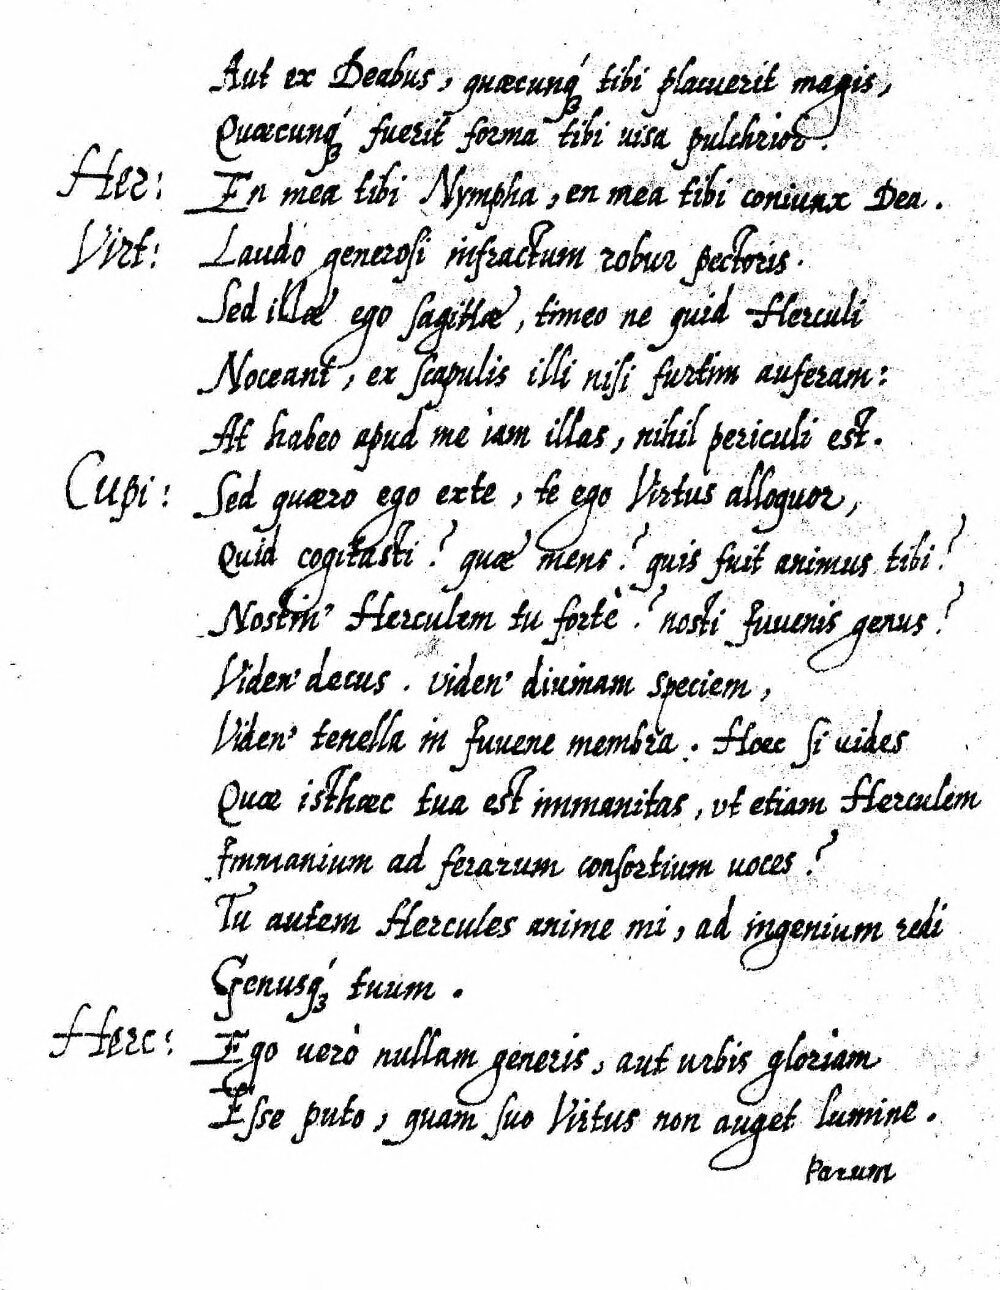 Aut ex Deabus, quæcunq́ʒ tibi placuerit magis,
Quæcunq́ʒ fuerit forma tibi uisa pulchrior.
Her: En mea tibi Nympha, en mea tibi coniunx Dea.
Virt: Laudo generosi infractum robur pectoris.
Sed illæ ego sagittæ, timeo ne quid Herculi
Noceant, ex scapulis illi nisi furtim auferam:
At habeo apud me iam illas, nihil periculi est.
Cupi: Sed quæro ego exte, te ego Virtus alloquor,
Quid cogitasti? quæ mens? quis fuit animus tibi?
Nostin' Herculem tu fortè? nosti Iuuenis genus?
Viden' decus. viden' diuinam speciem,
Viden' tenella in Iuuene membra. Hæc si uides
Quæ isthæc tua est immanitas, vt etiam Herculem
Immanium ad ferarum consortium uoces?
Tu autem Hercules anime mi, ad ingenium redi
Genusq́ʒ tuum.
Herc: Ego uerò nullam generis, aut urbis gloriam
Esse puto, quam suo Virtus non auget lumine.
Parum